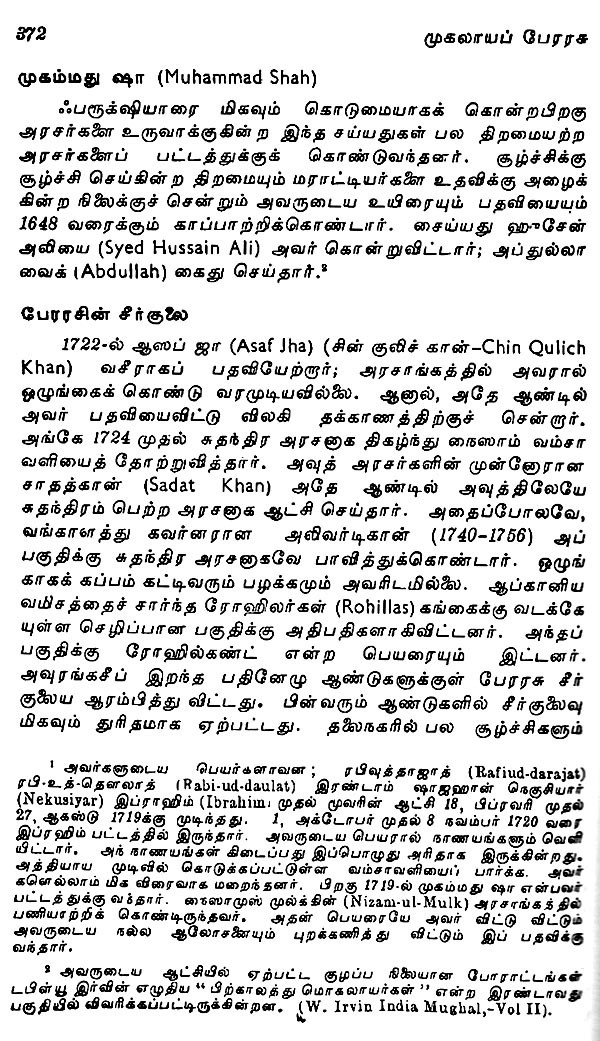 372 முகலாயப் பேரரசு
முகம்மது ஷா (Muhammad Shah)
ஃபரூக்ஷியாரை மிகவும் கொடுமையாகக் கொன்றபிறகு
அரசர்களை உருவாக்குகின்ற இந்த சய்யதுகள் பல திறமையற்ற
அரசர்களைப் பட்டத்துக்குக் கொண்டுவந்தனர். சூழ்ச்சிக்கு
சூழ்ச்சி செய்கின்ற திறமையும் மராட்டியர்களை உதவிக்கு அழைக்
கின்ற நிலைக்குச் சென்றும் அவருடைய உயிரையும் பதவியையும்
1648 வரைக்கும் காப்பாற்றிக்கொண்டார். சையது ஹுசேன்
அலியை (Syed Hussain Ali) அவர் கொன்றுவிட்டார்; அப்துல்லா
வைக் (Abdullah) கைது செய்தார்.²
பேரரசின் சீர்குலை
1722-ல் ஆஸப் ஜா (Asaf Jha) (சின் குலிச் கான்–Chin Qulich
Khan) வசீராகப் பதவியேற்றார்; அரசாங்கத்தில் அவரால்
ஒழுங்கைக் கொண்டு வரமுடியவில்லை. ஆனால், அதே ஆண்டில்
அவர் பதவியைவிட்டு விலகி தக்காணத்திற்குச் சென்றார்.
அங்கே 1724 முதல் சுதந்திர அரசனாக திகழ்ந்து நைஸாம் வம்சா
வளியைத் தோற்றுவித்தார். அவுத் அரசர்களின் முன்னோரான
சாதத்கான் (Sadat Khan) அதே ஆண்டில் அவுத்திலேயே
சுதந்திரம் பெற்ற அரசனாக ஆட்சி செய்தார். அதைப்போலவே,
வங்காளத்து கவர்னரான அலிவர்டிகான் (1740–1756) அப்
பகுதிக்கு சுதந்திர அரசனாகவே பாவித்துக்கொண்டார். ஒழுங்
காகக் கப்பம் கட்டிவரும் பழக்கமும் அவரிடமில்லை. ஆப்கானிய
வயிசத்தைச் சார்ந்த ரோஹிலர்கள் (Rohillas) கங்கைக்கு வடக்கே
யுள்ள செழிப்பான பகுதிக்கு அதிபதிகளாகிவிட்டனர். அந்தப்
பகுதிக்கு ரோஹில்கண்ட் என்ற பெயரையும் இட்டனர்.
அவுரங்கசீப் இறந்த பதினேழு ஆண்டுகளுக்குள் பேரரசு சீர்
குலைய ஆரம்பித்து விட்டது. பின்வரும் ஆண்டுகளில் சீர்குலைவு
மிகவும் துரிதமாக ஏற்பட்டது. தலைநகரில் பல சூழ்ச்சிகளும்
¹ அவர்களுடைய பெயர்களாவன; ரபிவுத்தாஜாத் (Rafiud-darajat)
ரபி-உத்-தௌலாத் (Rabi-ud-daulat) இரண்டாம் ஷாஜஹான் நெகுசியார்
(Nekusiyar) இப்ராஹிம் (Ibrahim) முதல் மூவரின் ஆட்சி 18, பிப்ரவரி முதல்
27, ஆகஸ்டு 1719க்கு முடிந்தது. 1, அக்டோபர் முதல் 8 நவம்பர் 1720 வரை
இப்ரஹிம் பட்டத்தில் இருந்தார். அவருடைய பெயரால் நாணயங்களும் வெளி
யிட்டார். அந் நாணயங்கள் கிடைப்பது இப்பொழுது அரிதாக இருக்கின்றது.
அத்தியாய முடிவில் கொடுக்கப்பட்டுள்ள வம்சாவளியைப் பார்க்க. அவர்
களெல்லாம் மிக விரைவாக மறைந்தனர். பிறகு 1719-ல் முகம்மது ஷா என்பவர்
பட்டத்துக்கு வந்தார். நைஸாமுஸ் முல்க்கின் (Nizam-ul-Mulk) அரசாங்கத்தில்
பணியாற்றிக் கொண்டிருந்தவர். அதன் பெயரையே அவர் விட்டு விட்டும்
அவருடைய நல்ல ஆலோசனையும் புறக்கணித்து விட்டும் இப் பதவிக்கு
வந்தார்.
² அவருடைய ஆட்சியில் ஏற்பட்ட குழப்ப நிலையான போராட்டங்கள்
டபிள்யூ இர்வின் எழுதிய “பிற்காலத்து மொகலாயர்கள்” என்ற இரண்டாவது
பகுதியில் விவரிக்கப்பட்டிருக்கின்றன. (W. Irvin India Mughal,-Vol II).